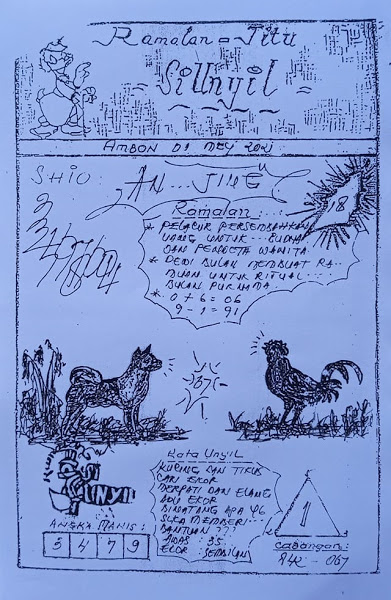 Ramalan = Jitu
= Si Unyil =
AMBON
SHIO:
AN... JING
18
Ramalan
* PELACUR PERSEMBAHKAN
UANG UNTUK... BUDHA
DAN PENDETA WANITA
* DEWI BULAN MEMBUAT RA-
MUAN UNTUK RITUAL...
BULAN PURNAMA.
* 0 + 6 = 06
9 - 1 = 91
Kata Unyil
KUCING DAN TIKUS
CARI EKOR
MERPATI DAN ELANG
ADU EKOR
BINATANG APA YG
SUKA MEMBERI...
BANTUAN ???
AWAS: 35
EKOR: SEMBILAN
UNYIL
ANGKA MANIS:
3 4 7 9
1
CABANGAN:
067